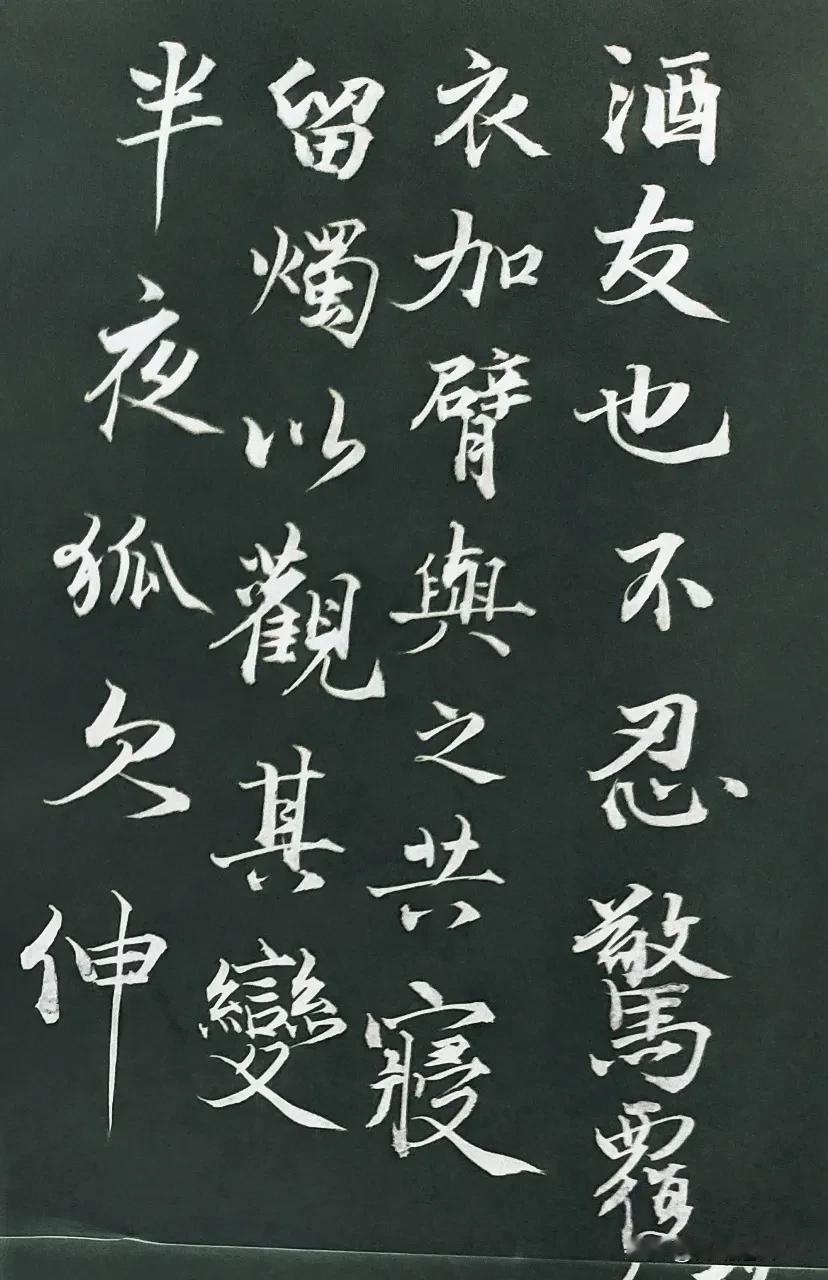 酒友也不忍驚覆
衣加臂與之共寢
留燭以觀其變
半夜狐欠伸